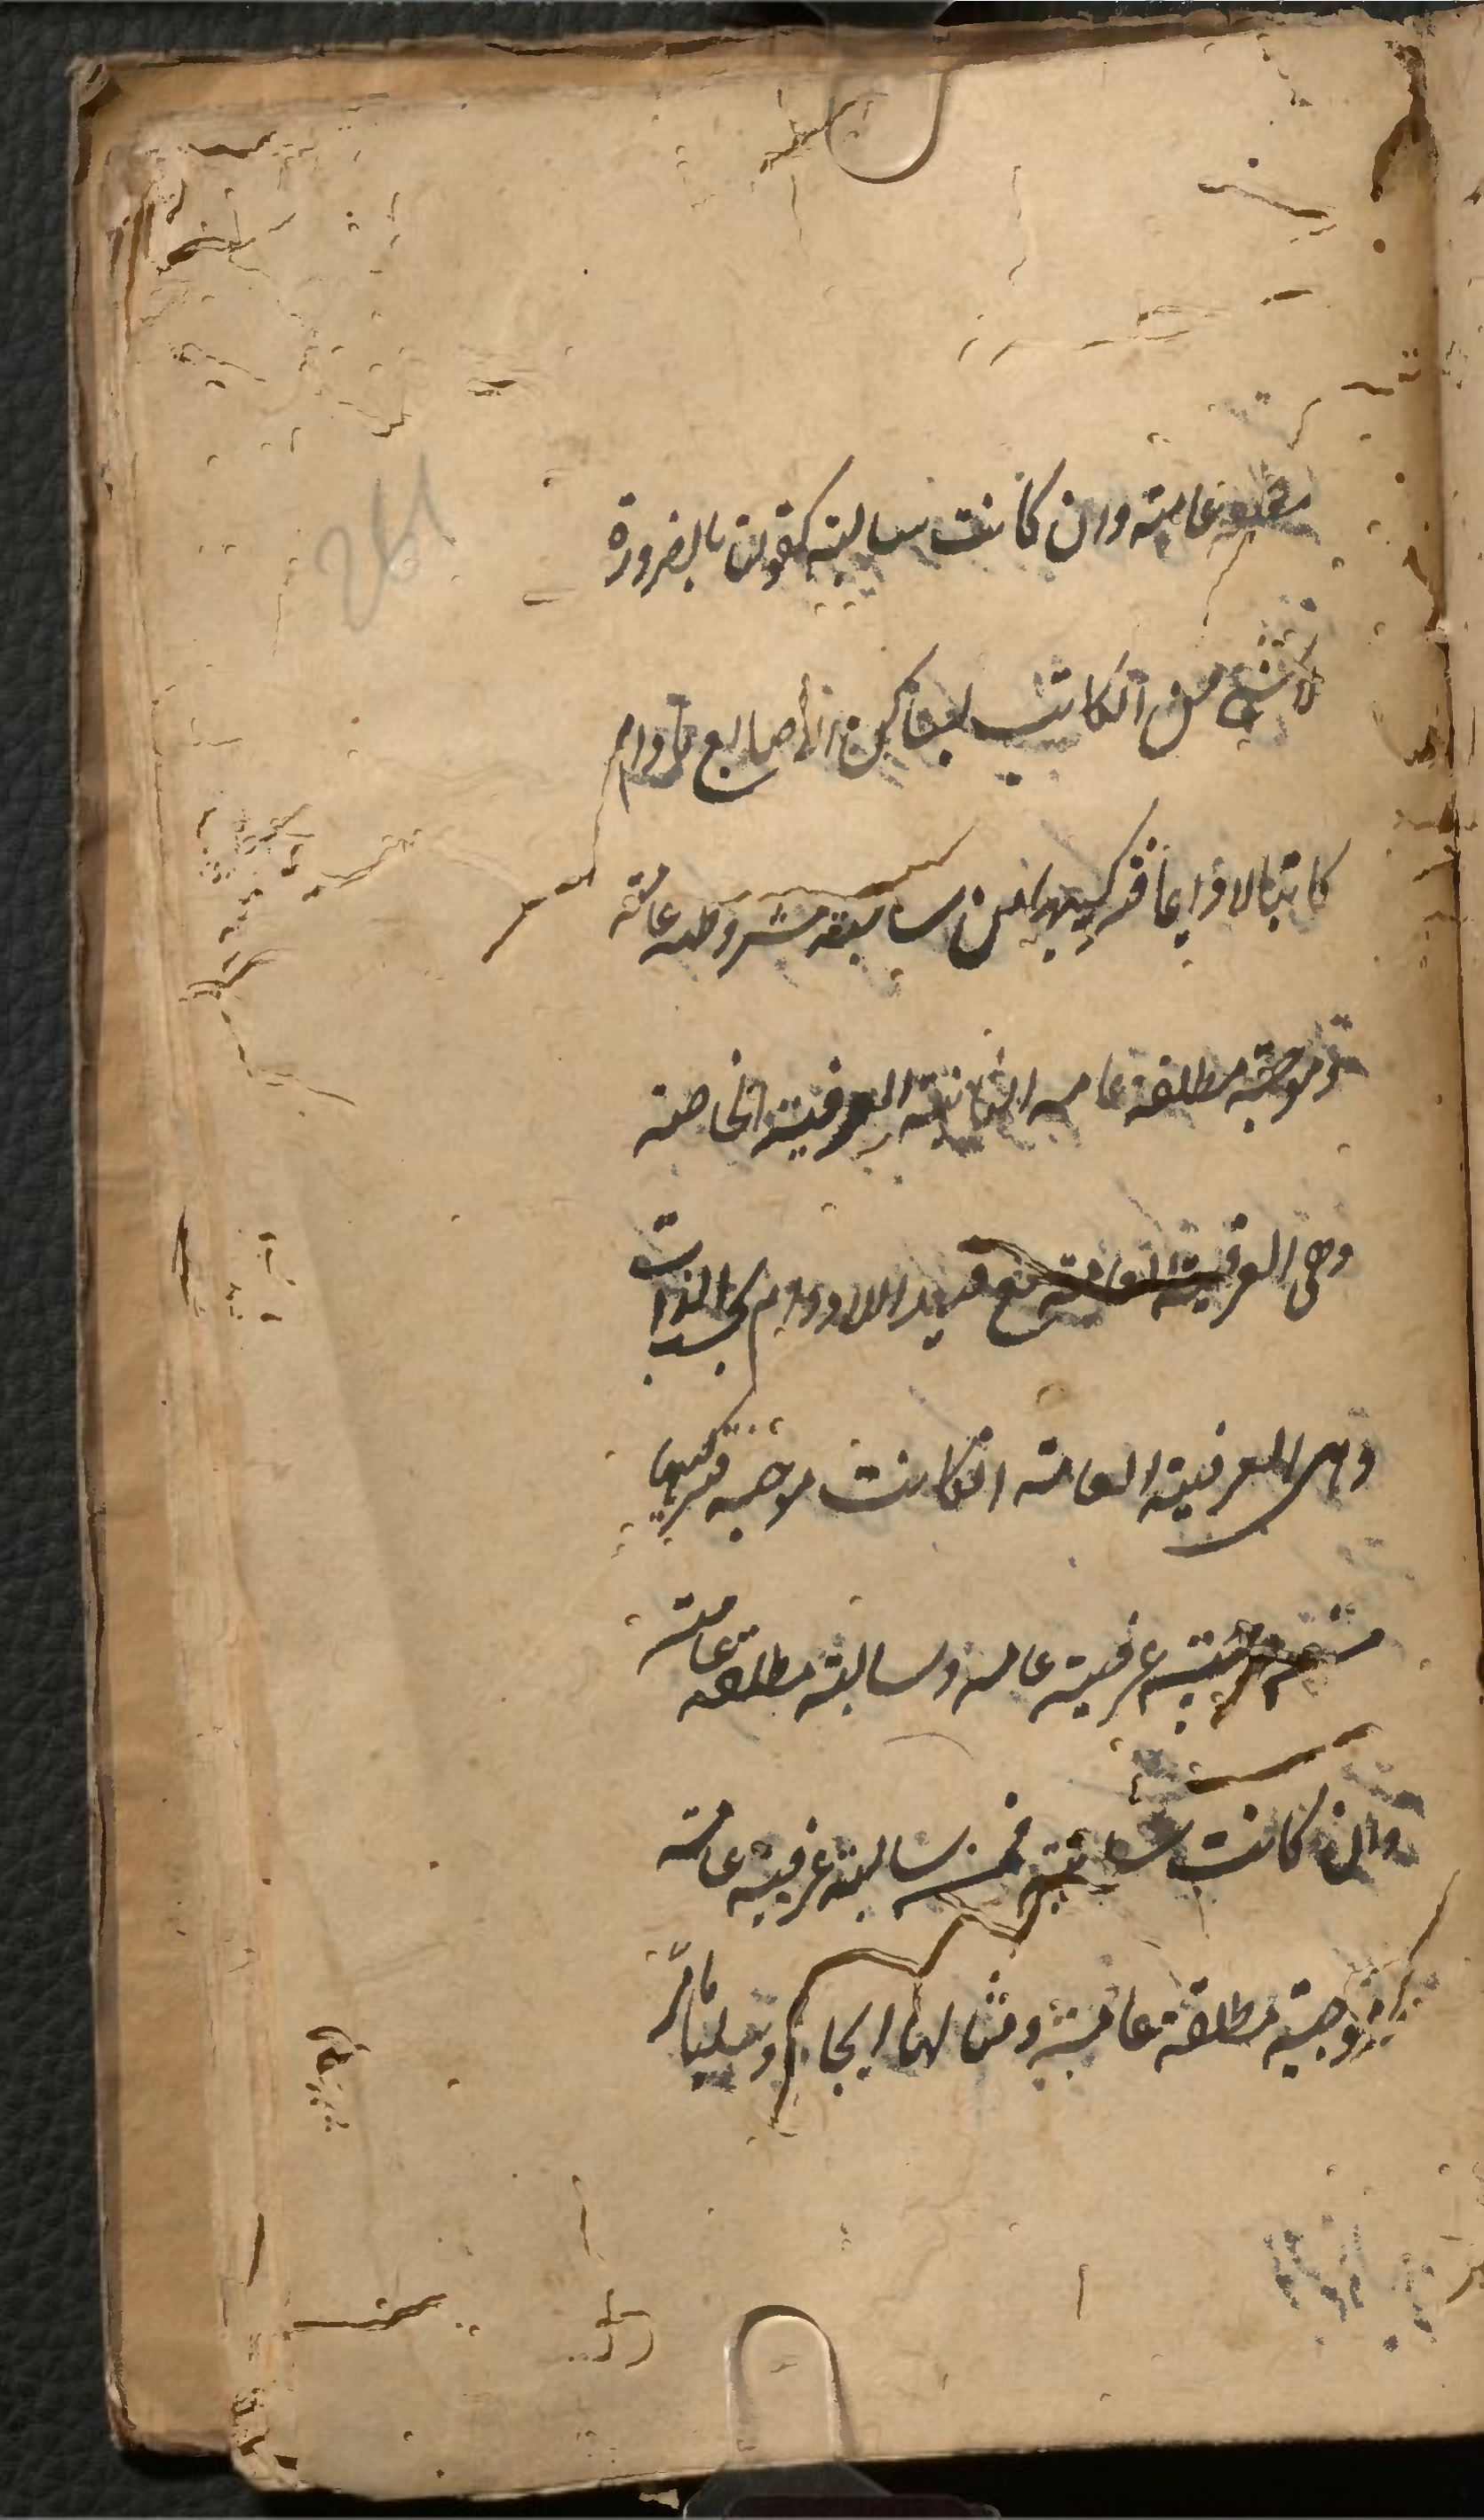 مطلقة عامة وان كانت سالبة كقولنا بالضرورة
لا شئ من الكاتب بساكن الاصابع مادام
كاتبا لا دايما فتركيبها من سابقه مشروطه عامة
وموجبة مطلقه عامه الثانية العرفية الخاصة
وهى العرفية العامة مع قيد اللادوام بحسب الذات
وهى العرفية العامة ان كانت موجبه فتركيبها
من موجبة عرفية عامه وسالبة مطلقه عامة
وان كانت سالبة فمن سالبة عرفية عامة
وموجبة مطلقة عامة ومثالها ايجابا وسلبا مامرّ